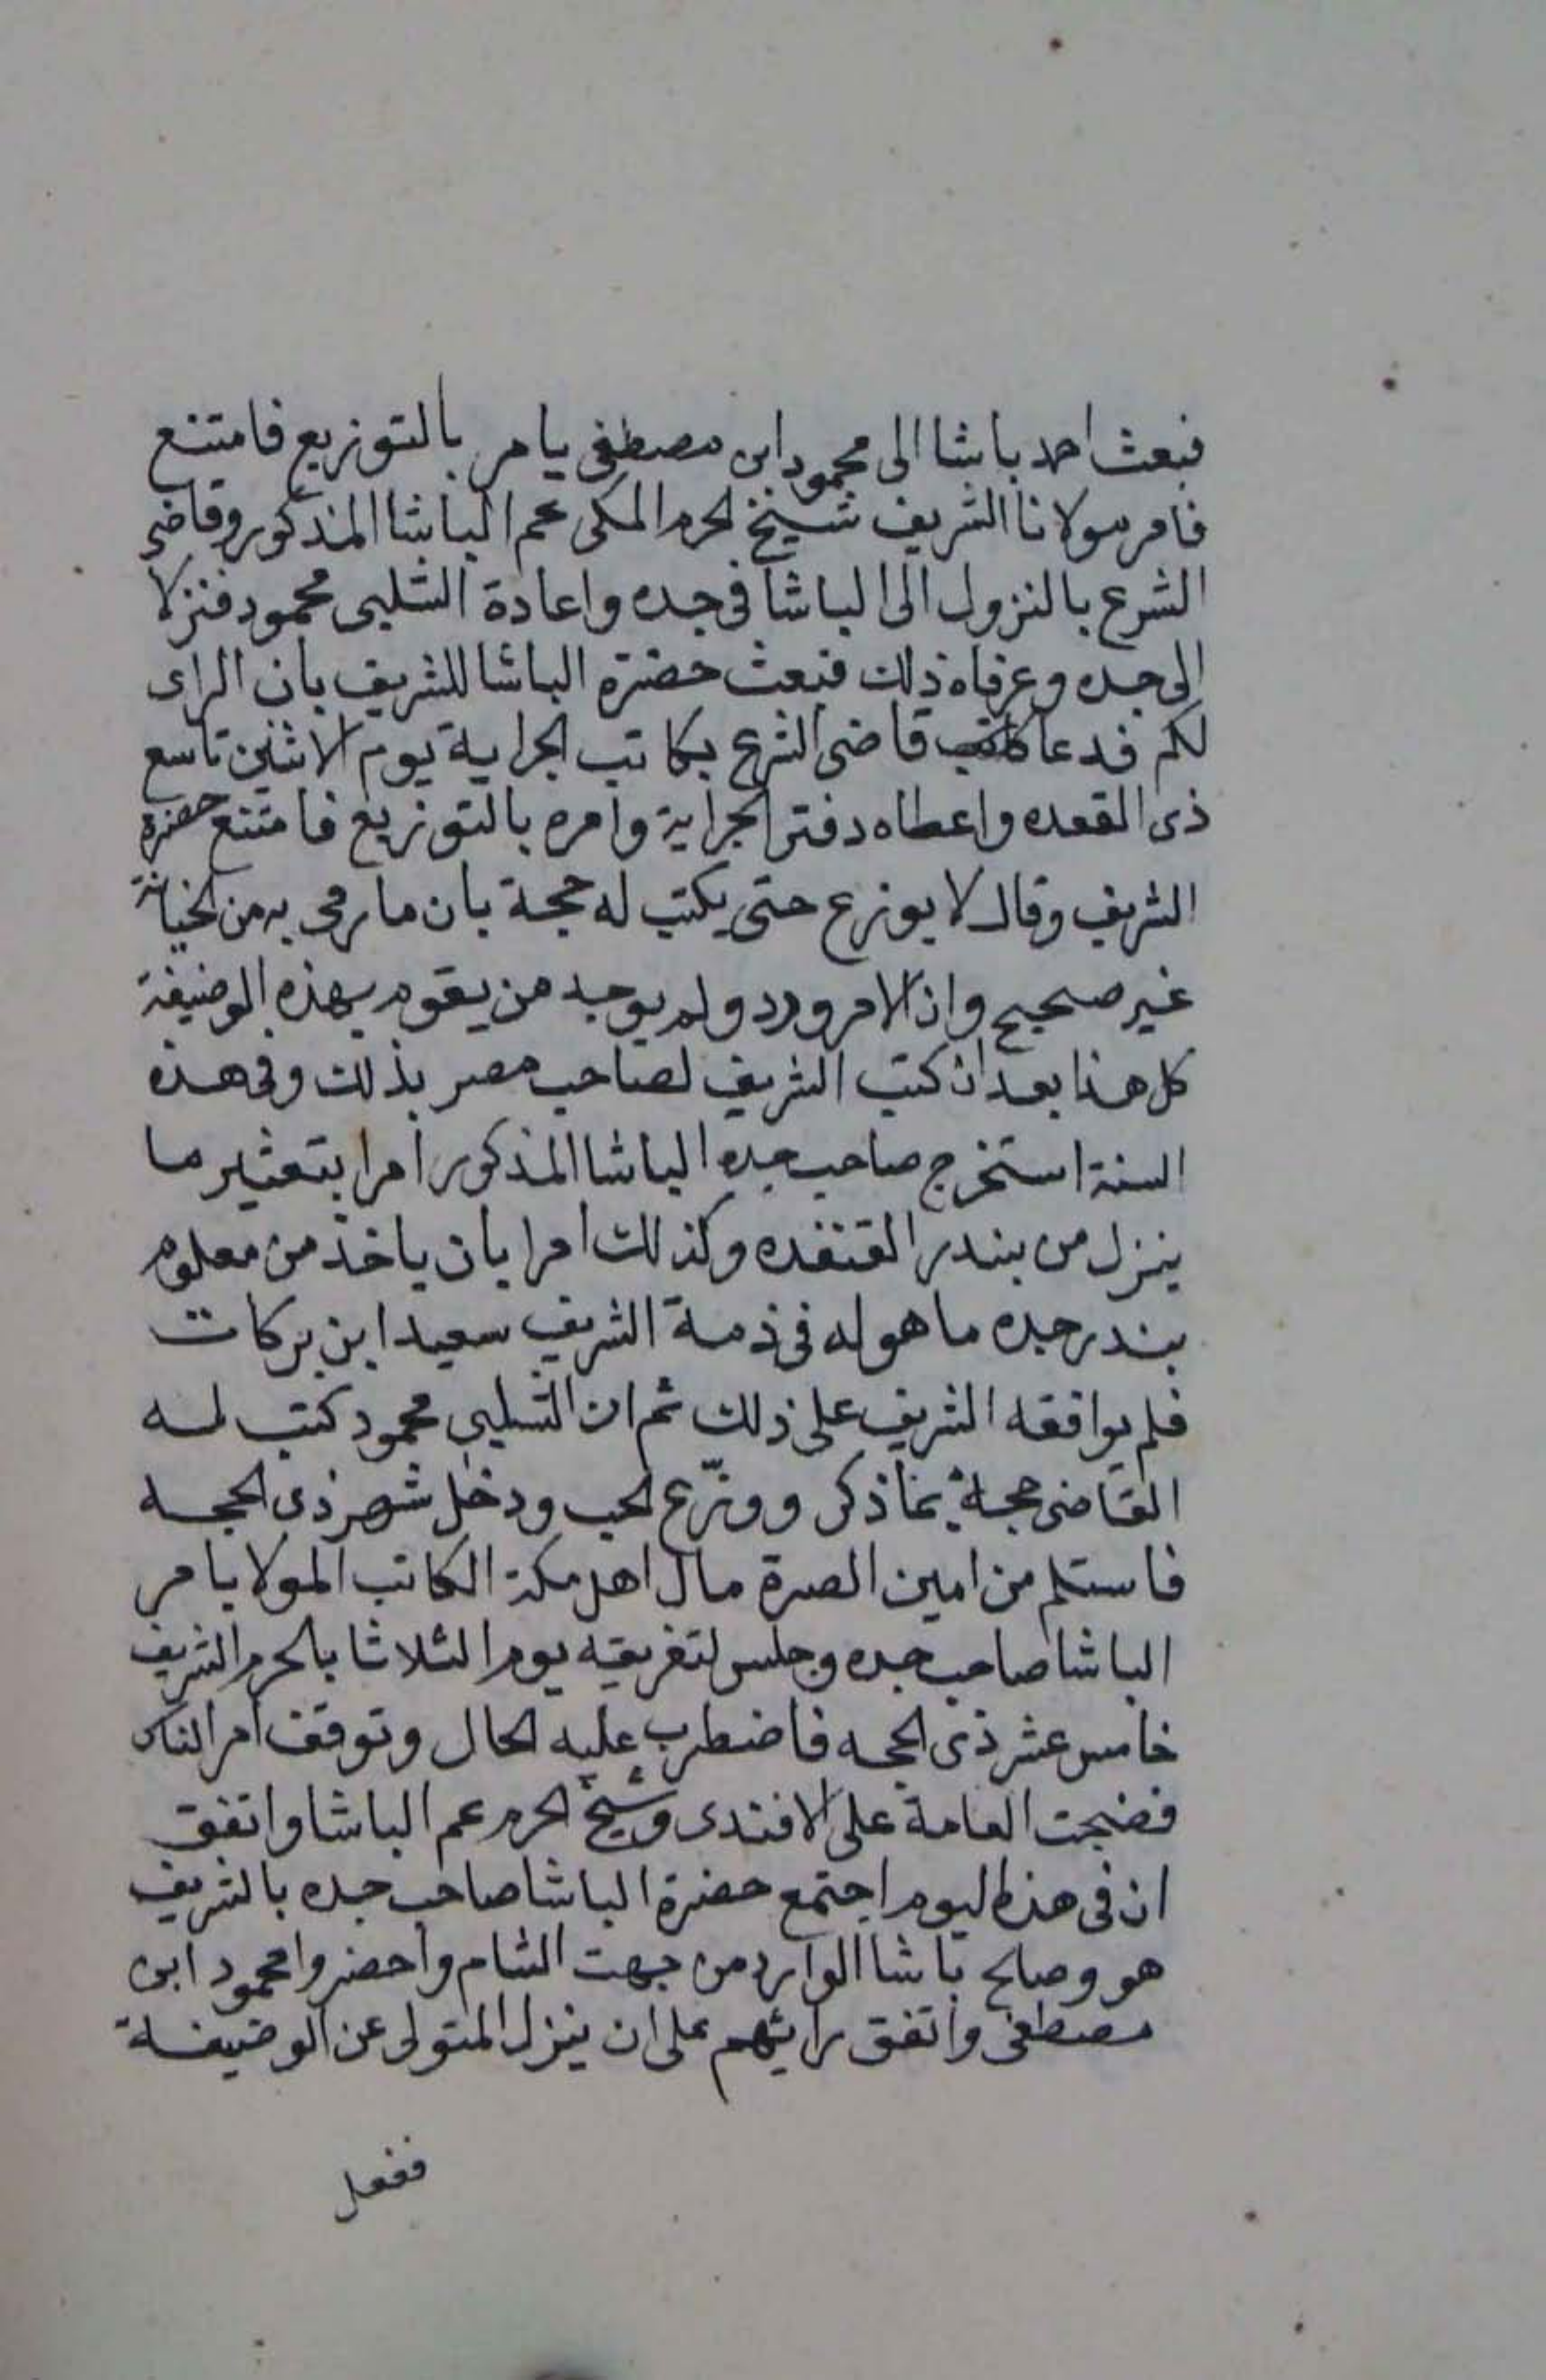 فبعث احمد باشا الى محمود ابن مصطفى يامر بالتوزيع فامتنع
فامر مولانا الشريف شيخ الحرم المكى عم الباشا المذكور وقاضى
الشرع بالنزول الى الباشا فى جده واعادة الشلبى محمود فنزلا
الى جده وعرفاه ذلك فبعث حضرة الباشا للشريف بان الراى
لكم فدعا قاضى الشرع بكاتب الجراية يوم الاثنين تاسع
ذى القعده واعطاه دفتر الجراية وامره بالتوزيع فامتنع حضرة
الشريف وقال لا يوزع حتى يكتب له حجة بان ما رمى به من الخيانة
غير صحيح واذ الامر ورد ولم يوجد من يقوم بهذه الوضيفة
كل هذا بعد ان كتب الشريف لصاحب مصر بذلك وفى هذه
السنة استخرج صاحب جده الباشا المذكور امرا بتعشير ما
ينزل من بندر القنفده وكذلك امرا بان ياخذ من معلوم
بندر جده ما هو له فى ذمة الشريف سعيد ابن بركات
فلم يوافقه الشريف على ذلك ثم ان الشلبي محمود كتب له
القاضى حجة بما ذكر ووزّع الحب ودخل شهر ذى الحجه
فاستلم من امين الصرة مال اهل مكة الكاتب المولا بامر
الباشا صاحب جده وجلس لتفريقه يوم الثلاثا بالحرم الشريف
خامس عشر ذى الحجه فاضطرب عليه الحال وتوقف امر الناس
فضجت العامة على الافندى وشيخ الحرم عم الباشا واتفق
ان فى هذا اليوم اجتمع حضرة الباشا صاحب جده بالشريف
هو وصالح باشا الوارد من جهت الشام واحضروا محمود ابن
مصطفى واتفق رايهم على ان ينزل المتولى عن الوضيفة
ففعل